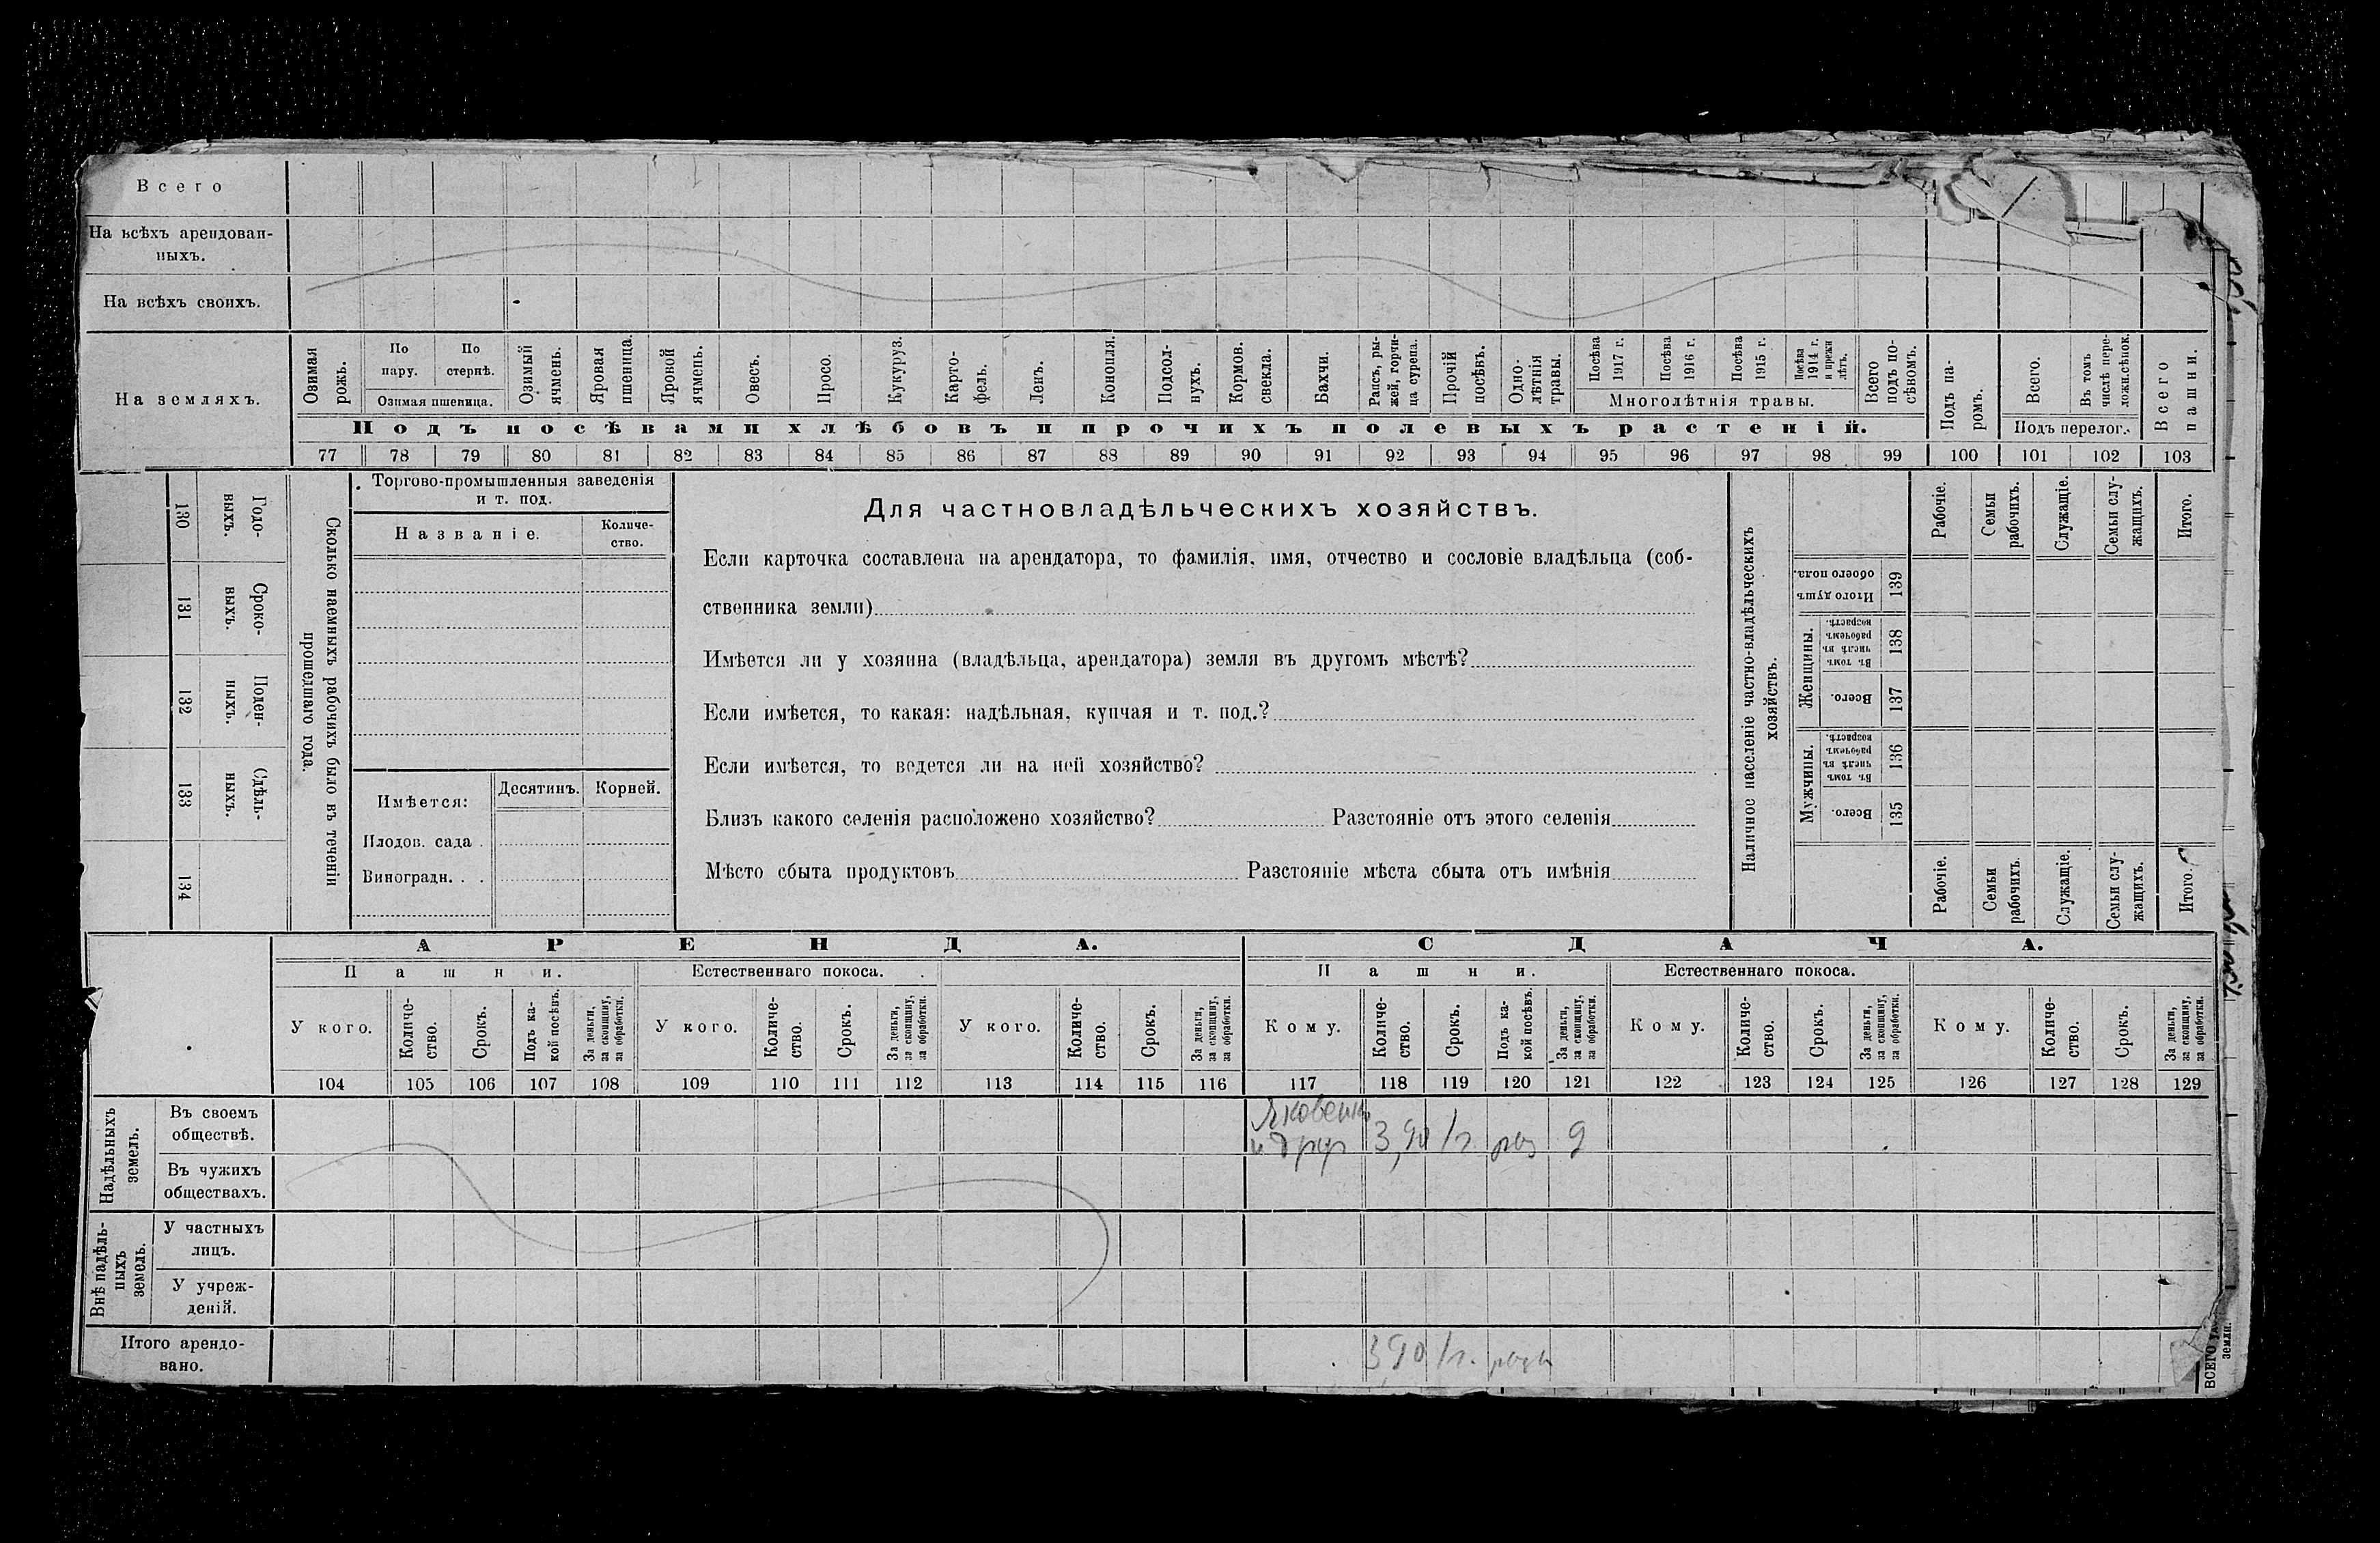 Всего
На всѣхъ арендован-
ныхъ.
На всѣхъ своихъ.
На земляхъ.
Озимая рожь.
По пару.
По стернѣ.
Озимая пшеница.
Озимый ячмень.
Яровая пшеница.
Яровой ячмень.
Овесъ.
Просо.
Кукуруз.
Карто-
фель.
Ленъ.
Конопля.
Подсол-
нухъ.
Кормов. свекла.
Бахчи.
Рапсъ, ры-
жей, горчи-
ца сурепа.
Прочій посѣвъ.
Одно-
лѣтнія травы.
Посѣва 1917 г.
Посѣва 1916 г.
Посѣва 1915 г.
Посѣва 1914 г. и прежн лѣтъ.
Многолѣтнія травы.
Всего подъ по-
сѣвомъ.
Подъ па-
ромъ.
Всего.
Въ томъ числѣ пере-
ложн.сѣнок.
Подъ перелог.
Всего пашни.
Подъ посѣвами хлѣбовъ и прочихъ полевыхъ растеній.
77 78 79 80 81 82 83 84 85 86 87 88 89 90 91 92 93 94 95 96 97 98 99 100 101 102 103
130 Годо-
выхъ.
131 Сроко-
выхъ.
132 Поден-
ныхъ.
133 Сдѣль-
ныхъ.
134
Сколько наемныхъ рабочихъ было въ теченіи
прошедшаго года.
Торгово-промышленныя заведенія
и т. под.
Названіе.
Количе-
ство.
Имѣется:
Десятин. Корней.
Плодов. сада .
Виноградн. . .
Для частновладѣльческихъ хозяйствъ.
Если карточка составлена на арендатора, то фамилія, имя, отчество и сословіе владѣльца (соб-
ственника земли)
Имѣется ли у хозяина (владѣльца, арендатора) земля въ другомъ мѣстѣ?
Если имѣется, то какая: надѣльная, купчая и т. под.?
Если имѣется, то ведется ли на ней хозяйство?
Близъ какого селенія расположено хозяйство? Разстояніе отъ этого селенія
Мѣсто сбыта продуктовъ Разстояніе мѣста сбыта отъ имѣнія
Наличное населеніе частно-владѣльческихъ
хозяйствъ.
Рабочіе.
Семьи рабочихъ.
Служащіе.
Семьи слу-
жащихъ.
Итого.
Итого душъ обоего пола. 139
Женщины.
Въ томъ числѣ въ рабочемъ возрастѣ. 138
Всего. 137
Мужчины.
Въ томъ числѣ въ рабочемъ возрастѣ. 136
Всего. 135
Рабочіе.
Семьи рабочихъ.
Служащіе.
Семьи слу-
жащихъ.
Итого.
АРЕНДА. СДАЧА.
Пашни. Естественнаго покоса. Пашни. Естественнаго покоса.
У кого.
Количе-
ство.
Срокъ.
Подъ ка-
кой посѣвъ.
За деньги, за скопщину, за обработки.
У кого.
Количе-
ство.
Срокъ.
За деньги, за скопщину, за обработки.
У кого.
Количе-
ство.
Срокъ.
За деньги, за скопщину, за обработки.
Кому.
Количе-
ство.
Срокъ.
Подъ ка-
кой посѣвъ.
За деньги, за скопщину, за обработки.
Кому.
Количе-
ство.
Срокъ.
За деньги, за скопщину, за обработки.
Кому.
Количе-
ство.
Срокъ.
За деньги, за скопщину, за обработки.
104 105 106 107 108 109 110 111 112 113 114 115 116 117 118 119 120 121 122 123 124 125 126 127 128 129
Надѣльныхъ земель.
Въ своемъ
обществѣ.
Яковенк
и друг 3,90 1г.
Въ чужихъ
обществахъ.
Внѣ надѣль-
ныхъ земель.
У частныхъ
лицъ.
У учреж-
деній.
Итого арендо-
вано.
3 90 1г.
ВСЕГО
земли.